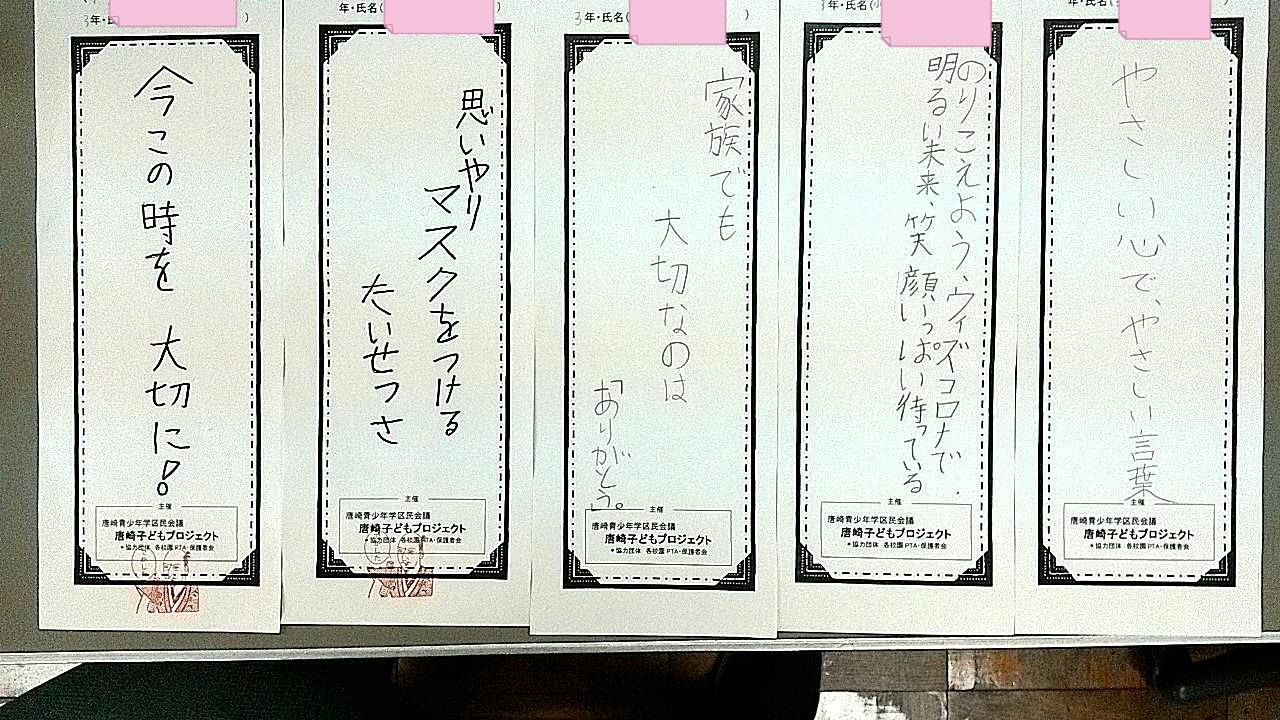 年・氏名( )
やさしい心で、やさしい言葉
主催
唐崎青少年学区民会議
唐崎子どもプロジェクト
*協力団体 各校園PTA・保護者会
年・氏名(
のりこえよう、ウィズコロナで
明るい未来、笑顔いっぱい待っている
主催
唐崎青少年学区民会議
唐崎子どもプロジェクト
*協力団体 各校園PTA・保護者会
3年・氏名( )
家族でも
大切なのは
「ありがとう。
主催
唐崎青少年学区民会議
唐崎子どもプロジェクト
*協力団体 各校園PTA・保護者会
年・氏名( )
思いやり
マスクをつける
たいせつさ
主催
唐崎青少年学区民会議
唐崎子どもプロジェクト
*協力団体 各校園PTA・保護者会
3年・ )
今この時を 大切に!
主催
唐崎青少年学区民会議
唐崎子どもプロジェクト
*協力団体 各校園PTA・保護者会